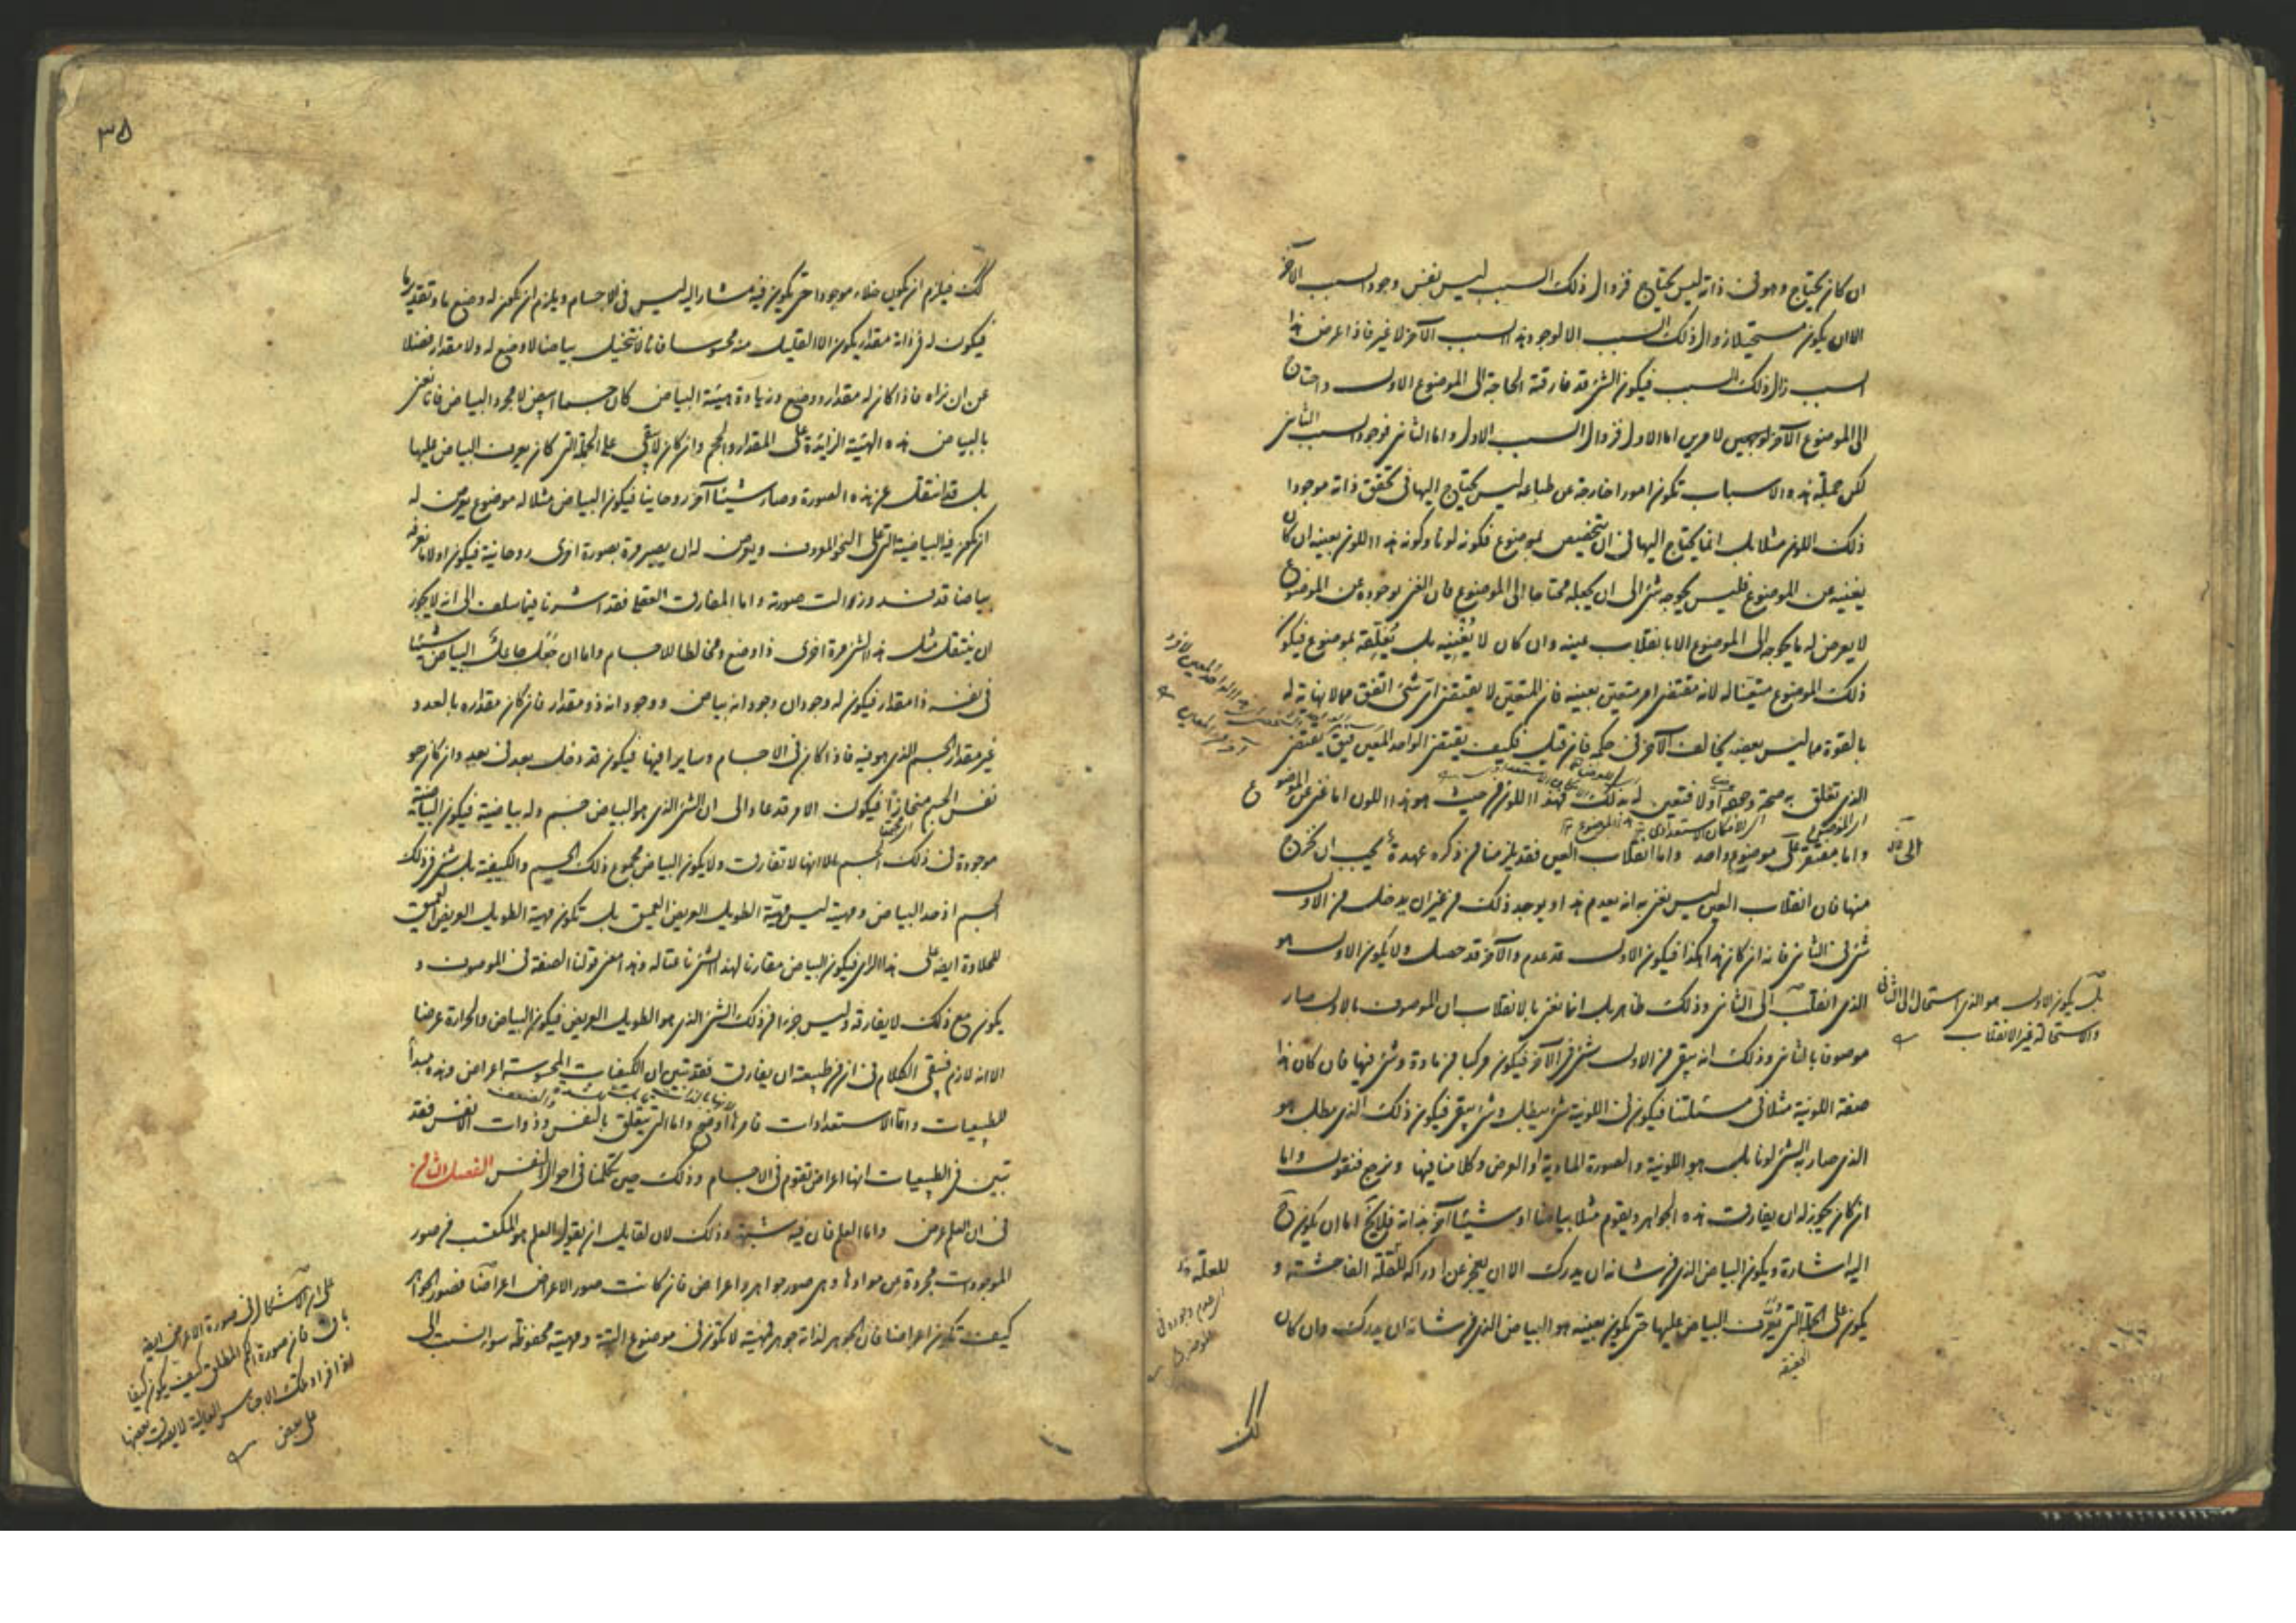 ان كان يحتاج وهو فى ذاته ليس يحتاج فزوال ذلك السبب ليس نفس وجود السبب الآخر
الا ان يكون مستحيلا زوال ذلك السبب الا لوجود هذا السبب الآخر لا غير فاذا عرض هذا
السبب زال ذلك السبب فيكون الشئ قد فارقته الحاجة الى الموضوع الاول واحتاج
الى الموضوع الآخر لامرين اما الاول فزوال السبب الاول واما الثانى فوجود السبب الثانى
لكن جملة هذه الاسباب تكون امورا خارجة عن طباعه ليس يحتاج اليها فى تحقق ذاته موجودا
ذلك اللون مثلا بل انما يحتاج اليها فى ان يتخصص بموضوع فكونه لونا وكونه هذا اللون بعينه ان كان
يغنيه عن الموضوع فليس يحوجه شئ الى ان يجعله محتاجا الى الموضوع فان الغنى بوجوده عن الموضوع
لا يعرض له ما يحوجه الى الموضوع الا بانقلاب عينه وان كان لا يغنيه بل يعلقه بموضوع فيكون
ذلك الموضوع متعينا له لانه مقتضى امر متعين بعينه فان المتعين لا يقتضى اى شئ اتفق مما لا نهاية له
بالقوة مما ليس بعضه يخالف الآخر فى حكمه فان قيل فكيف يقتضى الواحد المعين فيق يقتضى
الذى تعلق به صحة وجوده اولا فتعين له بذلك فهذا اللون من حيث هو هذا اللون اما غنى عن الموضوع
واما مفتقر الى موضوع واحد واما انقلاب العين فقد يلزمنا من ذكره عهدة يجب ان نخرج
منها فان انقلاب العين ليس يعنى به انه يعدم هذا ويوجد ذلك من غير ان يدخل من الاول
شئ فى الثانى فانه ان كان هذا هكذا فيكون الاول قد عدم والآخر قد حصل ولا يكون الاول هو
الذى انقلب الى الثانى وذلك ظاهر بل انما نعنى بالانقلاب ان الموصوف بالاول صار
بل يكون الاول هو الذى استحال الى الثانى
والاستحالة غير الانقلاب
موصوفا بالثانى وذلك انه يبقى من الاول شئ فى الآخر فيكون مركبا من مادة وشئ فيها فان كان هذا
صفة اللونية مثلا فى مسئلتنا فيكون فى اللونية شئ يبطل وشئ يبقى فيكون ذلك الذى يبطل هو
الذى صار به الشئ لونا بل هو اللونية والصورة المادية او العرض وكلامنا فيها ونرجع فنقول واما
ان كان يجوز له ان يفارق هذه الجواهر ويقوم مثلا بياضا او شيئا آخر بذاته فلا يخ اما ان يكون ح
اليه اشارة ويكون البياض الذى من شانه ان يدرك الا ان يعجز عن ادراكه للقلة الفاحشة و
يكون على الجملة التى يعرف البياض عليها حتى يكون بعينه هو البياض الذى من شانه ان يدرك وان كان
كك
٣٥
كك فيلزم ان يكون خلاء موجودا حتى يكون فيه مشار اليه ليس فى الاجسام ويلزم ان يكون له وضع ما وتقدير ما
فيكون له فى ذاته مقدار يكون الا القليل منه محسوسا فانا لا نتخيل بياضا لا وضع له ولا مقدار فضلا
عن ان نراه فاذا كان له مقدار ووضع وزيادة هيئة البياض كان جسما ابيض لا مجرد البياض فانا نعنى
بالبياض هذه الهيئة الزائدة على المقدار والحجم وان كان لا يبقى على الجملة التى كان يعرف البياض عليها
بل قد انتقل عن هذه الصورة وصار شيئا آخر روحانيا فيكون البياض مثلا له موضوع يعرض له
ان يكون فيه البياضية التى على النحو المعروف ويعرض له ان يصير مرة بصورة اخرى روحانية فيكون اولا ما نعرفه
بياضا قد فسد وزالت صورته واما المفارق العقلى فقد اشرنا فيما سلف الى انه لا يجوز
ان ينتقل مثل هذا الشئ مرة اخرى ذا وضع ومخالطا للاجسام واما ان جعل جاعل البياض شيئا
فى نفسه ذا مقدار فيكون له وجودان وجود انه بياض ووجود انه ذو مقدار فان كان مقداره بالعدد
غير مقدار الجسم الذى هو فيه فاذا كان فى الاجسام وساريا فيها فيكون قد دخل بعد فى بعد وان كان هو
نفس الجسم منحازا فيكون الامر قد عاد الى ان الشئ الذى هو البياض جسم وله بياضية فيكون البياضية
موجودة فى ذلك الجسم الا انها لا تفارق ولا يكون البياض مجموع ذلك الجسم والكيفية بل شئ فى ذلك
الجسم اذ حد البياض ومهيته ليس مهية الطويل العريض العميق بل تكون مهية الطويل العريض العميق
للحلاوة ايضا على هذا الراى فيكون البياض مقارنا لهذا الشئ ناعتا له وهذا معنى قولنا الصفة فى الموصوف و
يكون مع ذلك لا يفارقه وليس جزءا من ذلك الشئ الذى هو الطويل العريض فيكون البياض والحرارة عرضا
الا انه لازم فبقى الكلام فى ان من طبيعته ان يفارق فقد تبين ان الكيفيات المحسوسة اعراض وهذه مبدأ
للطبيعيات واما الاستعدادات فامرها اوضح واما التى يتعلق بالنفس وذوات الانفس فقد
تبين فى الطبيعيات انها اعراض تقوم فى الاجسام وذلك حين تكلمنا فى احوال النفس الفصل الثامن
فى ان العلم عرض واما العلم فان فيه شبهة وذلك لان لقايل ان يقول العلم هو المكتسب من صور
الموجودات مجردة عن موادها وهى صور جواهر واعراض فان كانت صور الاعراض اعراضا فصور الجواهر
كيف تكون اعراضا فان الجوهر لذاته جوهر فمهيته لا تكون فى موضوع البتة ومهيته محفوظة سواء نسبت الى